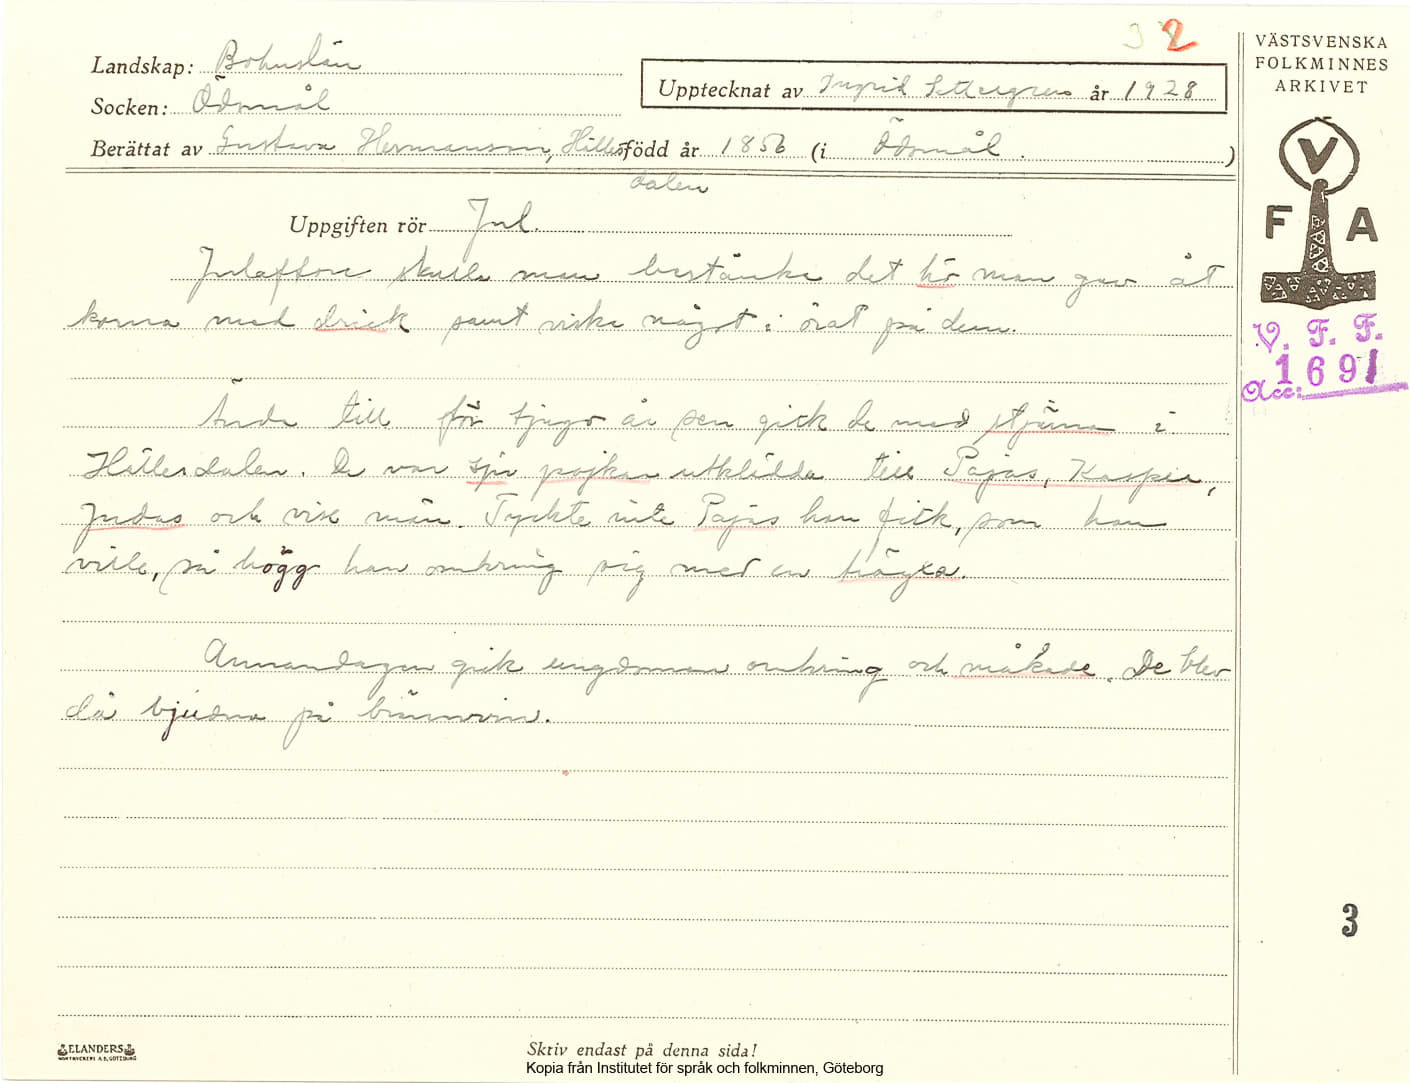 32
Landskap: Bohuslän
Socken: Ödsmål
Upptecknat av Ingrid Settergren år 1928
Berättat av Gustava Hermansson, Hällesdalen född år 1856 (i Ödsmål.)
Uppgiften rör Jul.
Julafton skulle man bestänka det hö man gav åt
korna med drick samt viska något i örat på dem.
Ända till för tjugo år sen gick de med stjärna i
Hällesdalen. De var sju pojkar utklädda till Pajas, Kasper,
Judas och vise män. Tyckte inte Pajas han fick, som han
ville, så högg han omkring sig med en
Annandagen gick ungdomen omkring och måkade. De blev
då bjudna på brännvin.
VÄSTSVENSKA
FOLKMINNES
ARKIVET
V
F A
V. F. F.
Acc: 1691
3
ELANDERS
BOKTRYCKERI A.B. GÖTEBORG
Skriv endast på denna sida!
Kopia från Institutet för språk och folkminnen, Göteborg